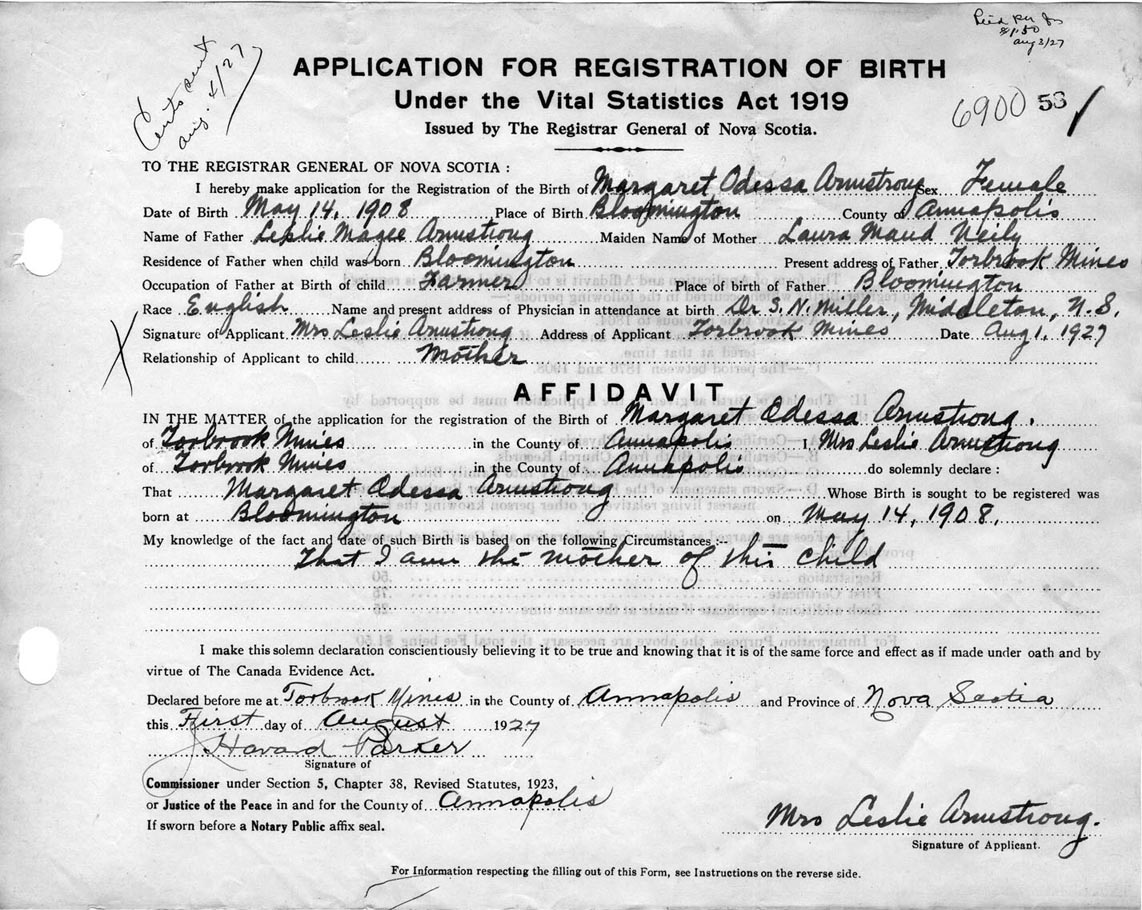 Aug 3/27
$1.50
Certs sent
Aug. 4/27
APPLICATION FOR REGISTRATION OF BIRTH
Under the Vital Statistics Act 1919
6900 53
Issued by The Registrar General of Nova Scotia.
TO THE REGISTRAR GENERAL OF NOVA SCOTIA :
I hereby make application for the Registration of the Birth of Margaret Odessa Armstrong Sex Female
Date of Birth May 14, 1908 Place of Birth Bloomington County of Annapolis
Name of Father Leslie Magee Armstrong Maiden Name of Mother Laura Maud Neily
Residence of Father when child was born Bloomington Present address of Father Torbrook Mines
Occupation of Father at Birth of child Farmer Place of birth of Father Bloomington
Race English Name and present address of Physician in attendance at birth Dr S. N. Miller, Middleton, N.S.
Signature of Applicant Mrs Leslie Armstrong Address of Applicant Torbrook Mines Date Aug 1, 1927
Relationship of Applicant to child Mother
AFFIDAVIT
IN THE MATTER of the application for the registration of the Birth of Margaret Odessa Armstrong.
of Torbrook Mines in the County of Annapolis I, Mrs Leslie Armstrong
of Torbrook Mines in the County of Annapolis do solemnly declare :
That Margaret Odessa Armstrong Whose Birth is sought to be registered was
born at Bloomington on May 14, 1908.
My knowledge of the fact and date of such Birth is based on the following Circumstances :--
That I am the mother of this child
I make this solemn declaration conscientiously believing it to be true and knowing that it is of the same force and effect as if made under oath and by
virtue of The Canada Evidence Act.
Declared before me at Torbrook Mines in the County of Annapolis and Province of Nova Scotia
this First day of August 1927
Havard Parker
Signature of
Commissioner under Section 5, Chapter 38, Revised Statutes, 1923,
or Justice of the Peace in and for the County of Annapolis
If sworn before a Notary Public affix seal.
Mrs Leslie Armstrong.
Signature of Applicant.
For Information respecting the filling out of this Form, see Instructions on the reverse side.